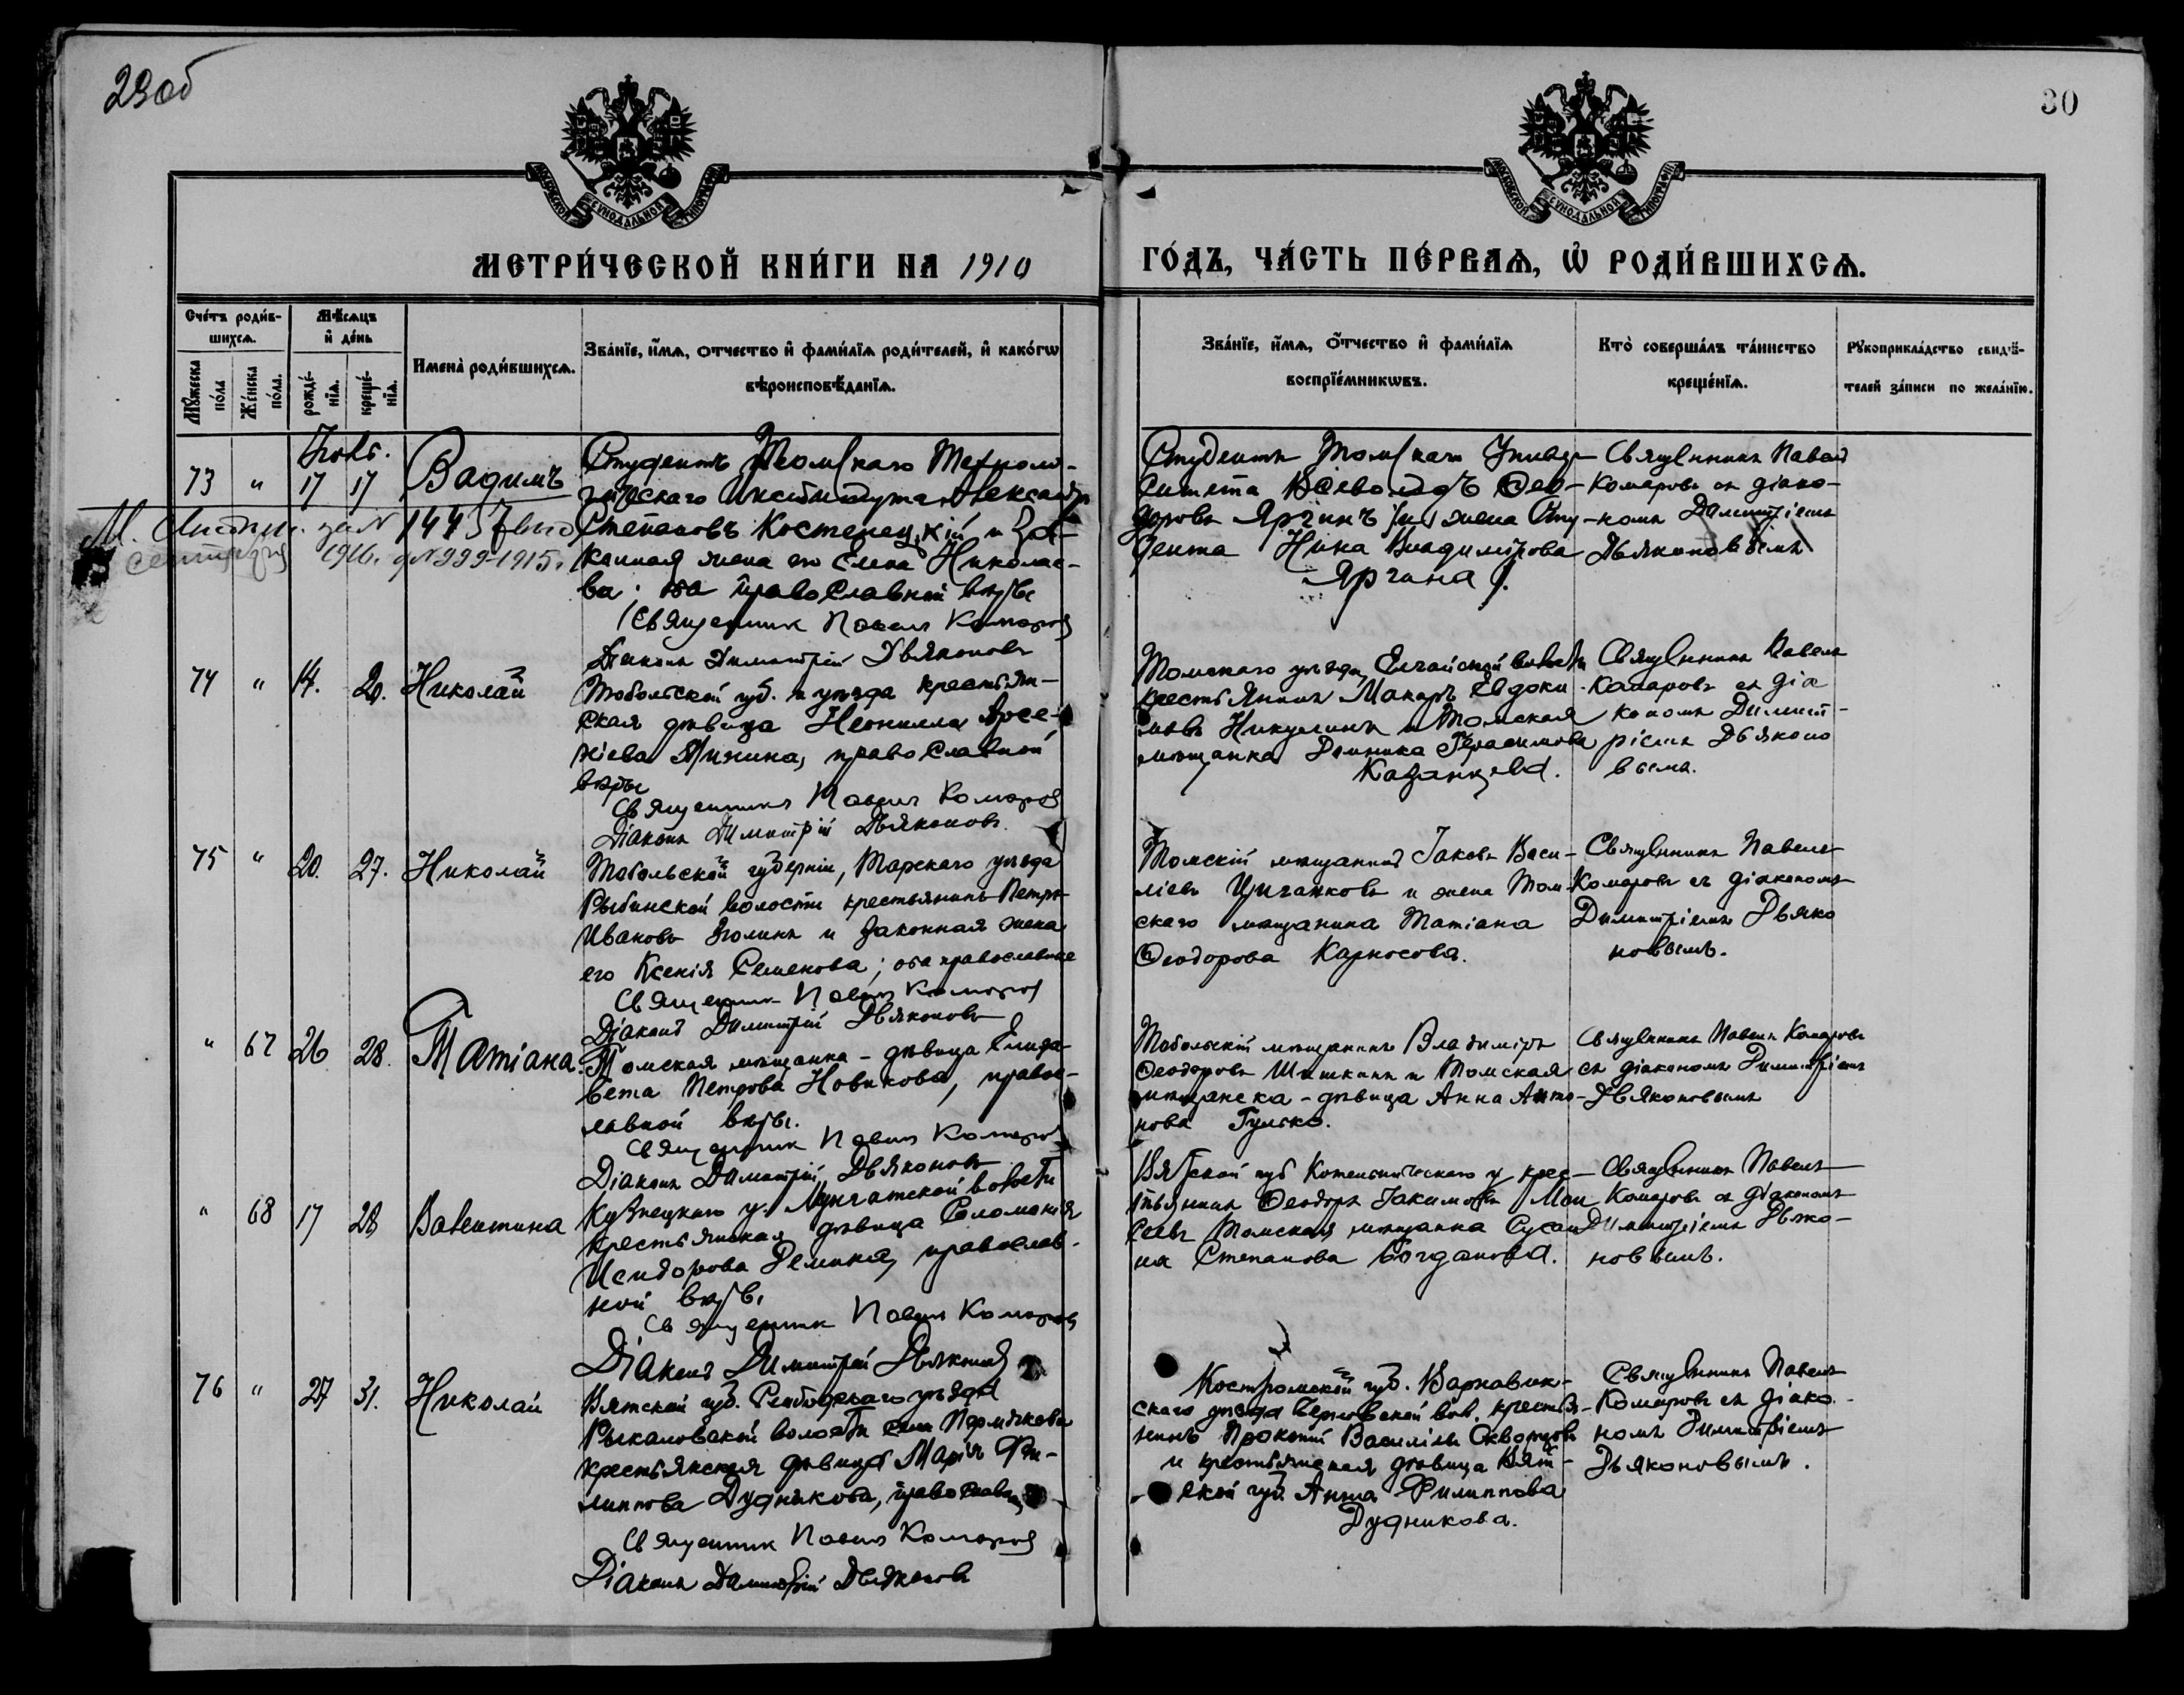 29об
30
МОСКОВСКОЙ СѴНОДАЛЬНОЙ ТИПОГРАФІИ
МОСКОВСКОЙ СѴНОДАЛЬНОЙ ТИПОГРАФІИ
МЕТРИ́ЧЕСКОЙ КНИ́ГИ НА 1910
ГО́ДЪ, ЧА́СТЬ ПЕ́РВАѦ, Ѡ҆ РОДИ́ВШИХСѦ.
Сче́тъ роди́в-
шихсѧ.
Мѹ́жеска по́ла
Же́нска по́ла.
Мѣ́сѧцъ
и҆ де́нь
рожде́-
нїѧ.
креще́-
нїѧ.
Имена̀ роди́вшихсѧ.
Зва́нїе, и҆́мѧ, ѻ҆́тчество и҆ фами́лїѧ роди́телей, и҆ како́гѡ
вѣроисповѣ́данїѧ.
Зва́нїе, и҆́мѧ, ѻ҆́тчество и҆ фами́лїѧ
воспрїе́мникѡвъ.
Кто̀ соверша́лъ та́инство
креще́нїѧ.
Рꙋкоприкла́дство свидѣ́-
телей за́писи по жела́нїю.
73 " 17 17 Вадимъ
Студентъ Томскаго Техноло-
гическаго Института Александръ
Степановъ Костенецкій и за-
конная жена его Елена Николае-
ва; оба православной вѣры
Священник Павел Комаров
Діаконъ Димитрій Дьяконовъ
Студентъ Томскаго Универ-
ситета Всеволодъ Ѳео-
доровъ Ярчинъ и жена Сту-
дента Нина Владимірова
Ярчина.
Священникъ Павелъ
Комаровъ съ діако-
номъ Димитріемъ
Дьяконовымъ
1916. 999-1915.
74 " 14. 20. Николай
Тобольской губ. и уѣзда крестьян-
ская дѣвица Неонилла Арсе-
ніева, православной
вѣры
Священникъ Павелъ Комаров
Діаконъ Димитрій Дьяконовъ.
Томскаго уѣзда, Елгайской волости
крестьянинъ Макаръ Евдоки-
мовъ Никулинъ и Томская
мѣщанка Домника Герасимова
Казанцева.
Священникъ Павелъ
Комаровъ съ діа
кономъ Димит-
ріемъ Дьяконо
вымъ.
75 " 20. 27. Николай
Тобольской губерніи, Тарскаго уѣзда
Рыбинской волости крестьянинъ Петръ
Ивановъ и законная жена
его Ксенія Семенова; оба православные
Священник Павел Комаров
Діаконъ Димитрій Дьяконовъ
Томскій мѣщанинъ Іаковъ Васи-
ліевъ Цыганковъ и жена Том-
скаго мѣщанина Татіана
Ѳеодорова Карносова.
Священникъ Павелъ
Комаровъ съ діакономъ
Димитріемъ Дьяко
новымъ.
" 67 26 28. Татіана.
Томская мѣщанка - дѣвица Елиза-
вета Петрова Новикова, правос-
лавной вѣры.
Священник Павел Комаров
Діаконъ Димитрій Дьяконовъ
Тобольскій мѣщанинъ Владиміръ
Ѳеодоровъ Шишкинъ и Томская
мѣщанска - дѣвица Анна Анто-
нова Гулько.
Священникъ Павелъ Комаровъ
съ діакономъ Димитріемъ
Дьяконовымъ
" 68 17 28 Валентина
Кузнецкаго у. Мунгатской волости
крестьянская дѣвица Соломанія
Исидорова Демина, православ-
ной вѣры
Священник Павел Комаров
Діаконъ Димитрій Дьяконовъ
Вятской губ Котельническаго у, крес-
тьянинъ Ѳеодоръ Іакимовъ Мои
сеевъ Томская мѣщанка Сусан
на Степанова Богданова.
Священникъ Павелъ
Комаровъ съ діакономъ
Димитріемъ Дьяко-
новымъ.
76 " 27 31. Николай
Вятской губ. Слободскаго уѣзда
волости
крестьянская дѣвица Марія Фи-
липпова Дудникова, православн
Священник Павел Комаров
Діаконъ Димитрій Дьяконовъ
Костромской губ. Варнавин-
скаго уѣзда вол. крестья-
нинъ Прокопій Василіевъ Скворцовъ
и крестьянская дѣвица Вят-
ской губ. Анна Филиппова
Дудникова.
Священникъ Павелъ
Комаровъ съ діако-
номъ Димитріемъ
Дьяконовымъ.